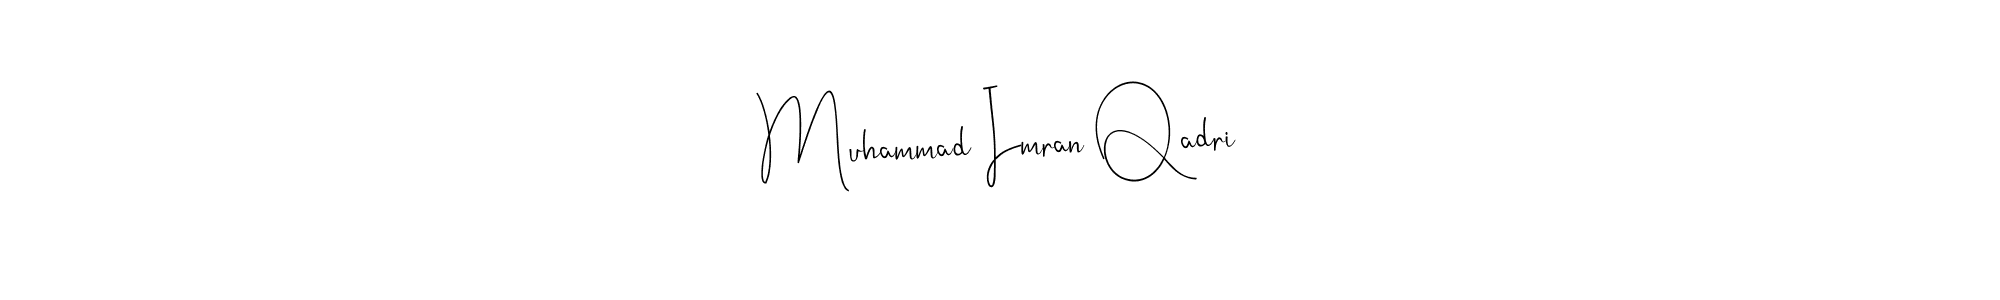 Muhammad Imran Qadri